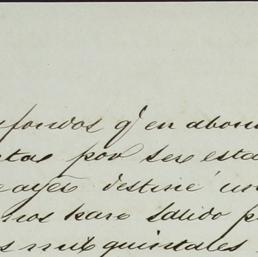 fondos q' en abon
tas por ser esta
ayer destiné un
nos para salido p
s mil quintales